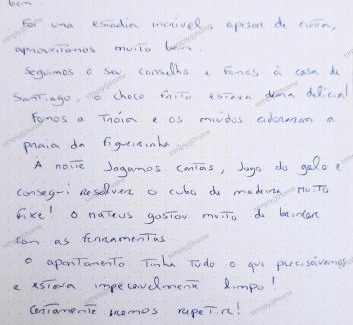 bem
Foi uma estadia incrível, apesar de curta,
aproveitamos muito bem.
Seguimos o seu conselho e fomos à casa de
Santiago, o choco frito estava uma delícia!
Fomos a Tróia e os miúdos adoraram a
praia da Figueirinha
À noite jogamos cartas, jogo do galo e
consegui resolver o cubo de madeira muito
fixe! O Mateus gostou muito de brincar
com as ferramentas.
O apartamento tinha tudo o que precisávamos
e estava impecavelmente limpo!
Certamente iremos repetir!